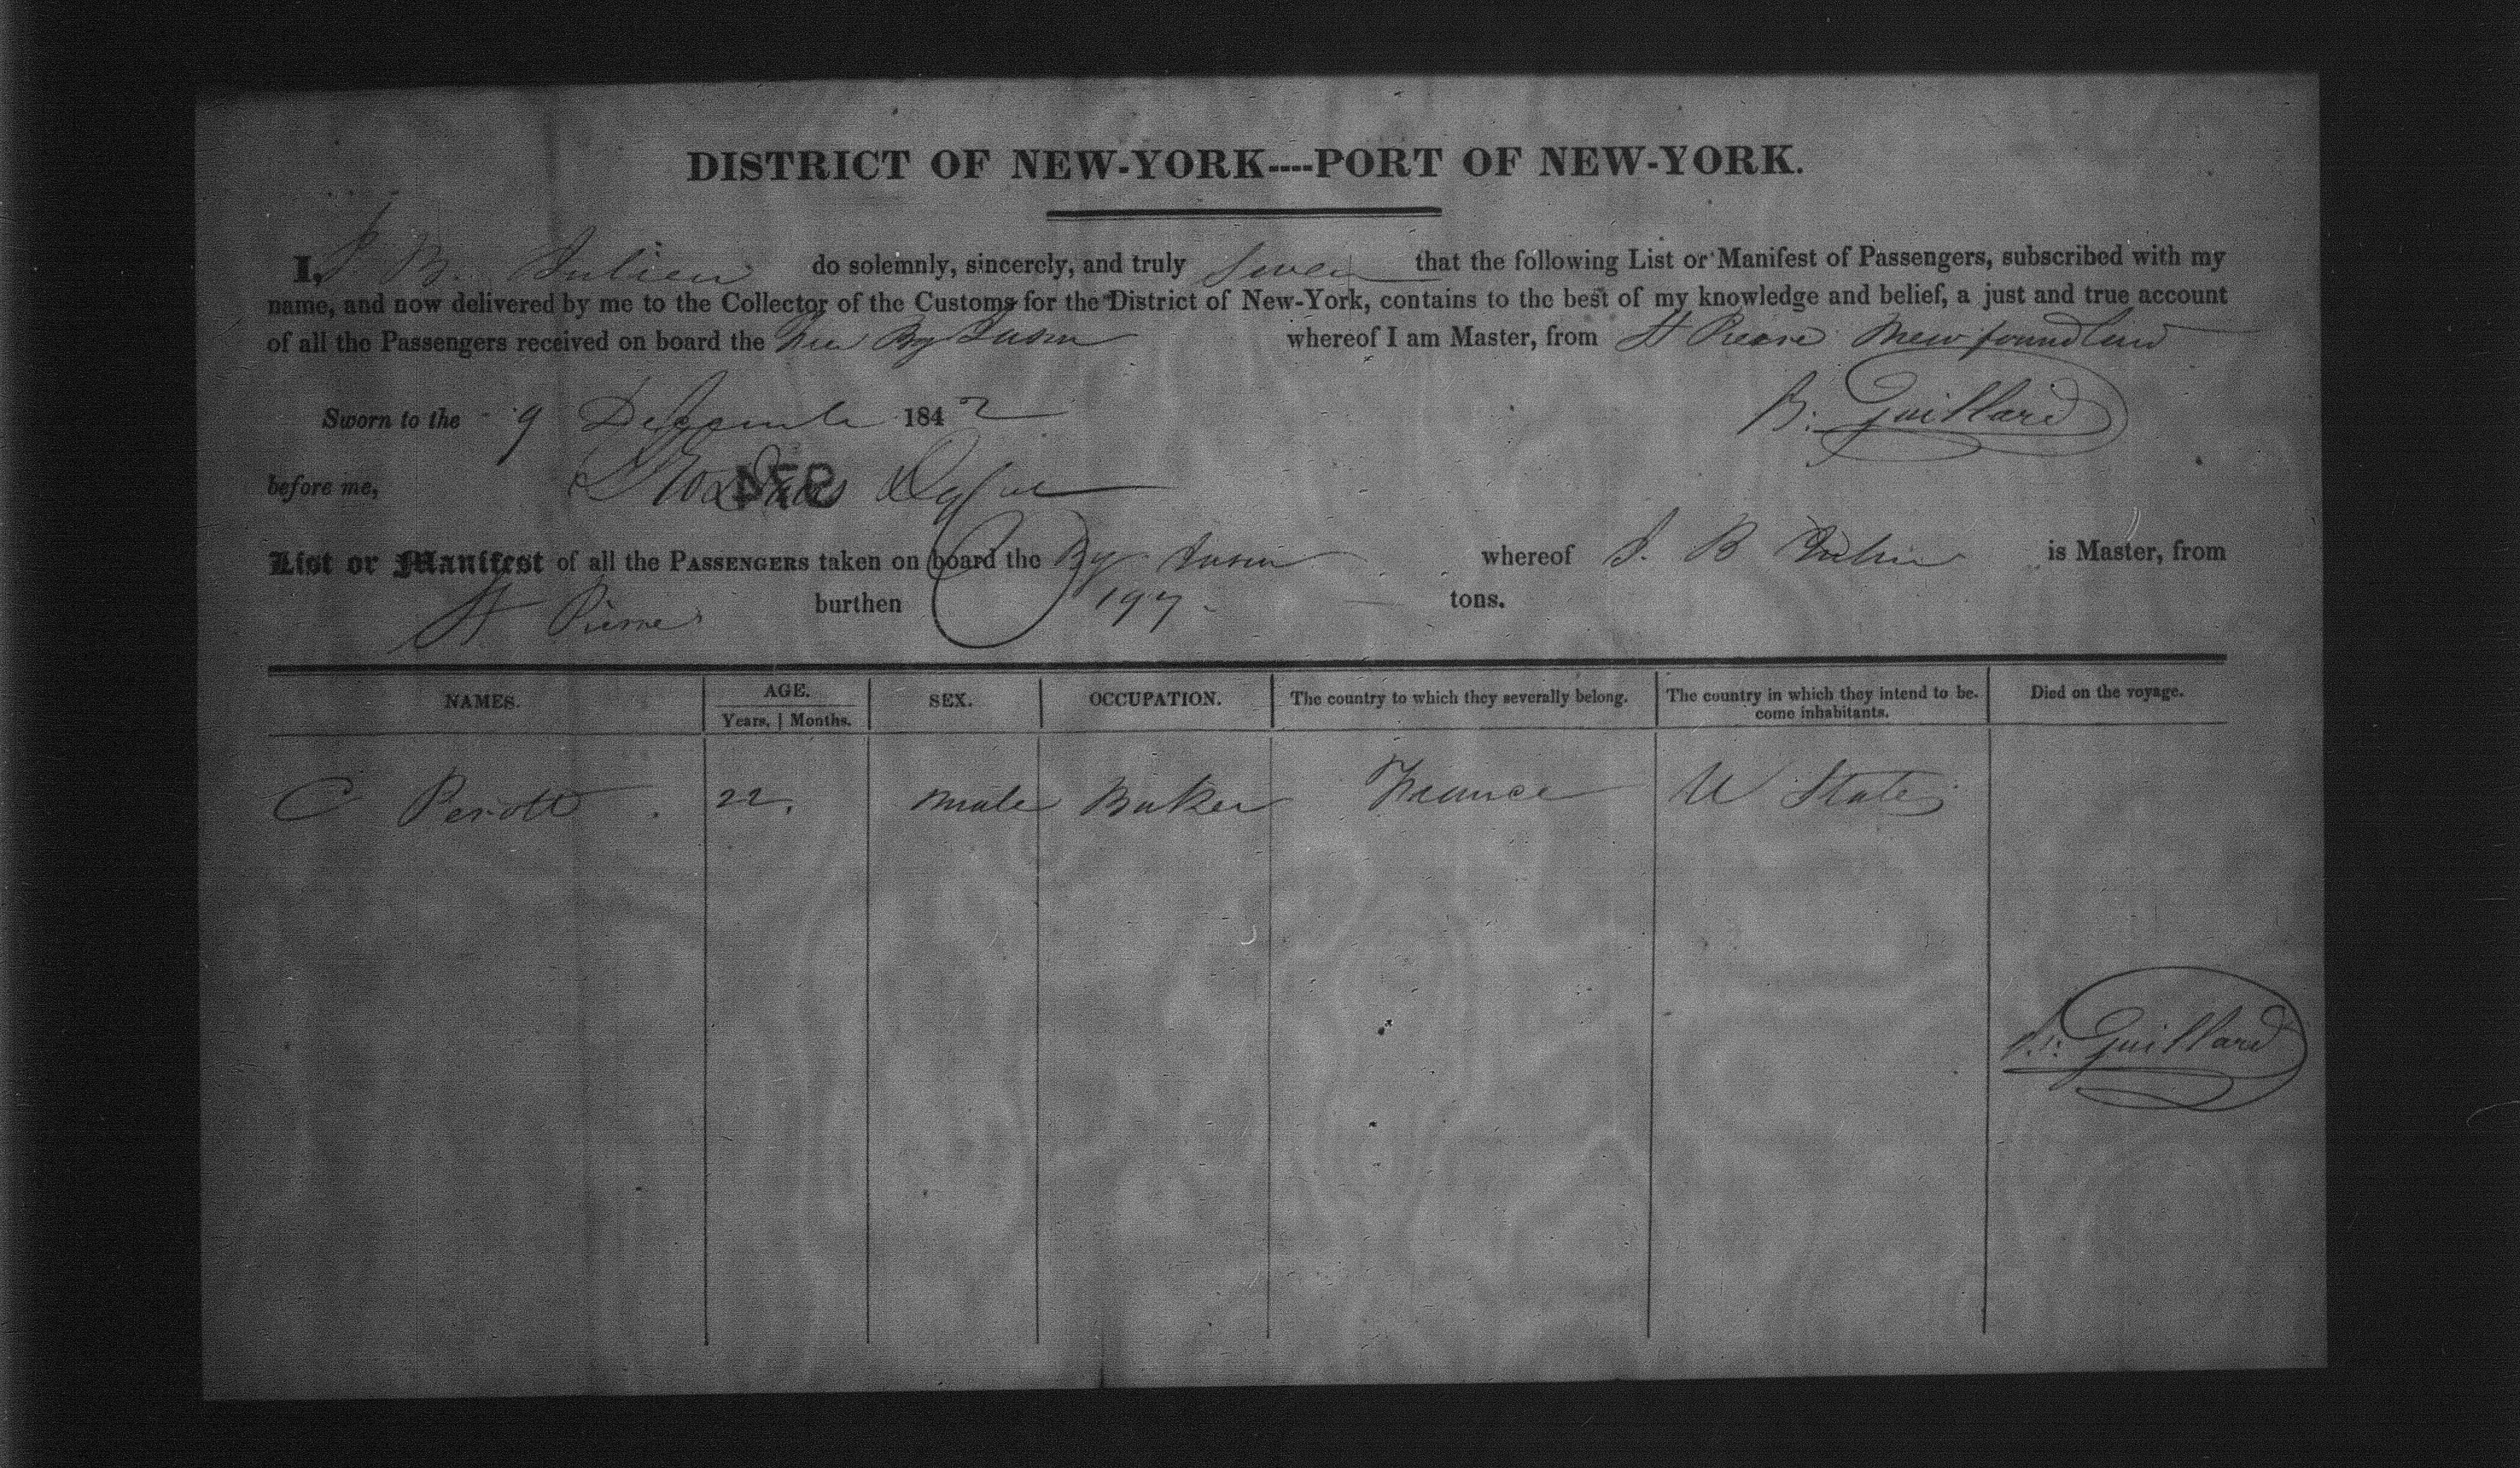 DISTRICT OF NEW-YORK----PORT OF NEW-YORK.
I, J B. Julien do solemnly, sincerely, and truly Swear that the following List or Manifest of Passengers, subscribed with my
name, and now delivered by me to the Collector of the Customs for the District of New-York, contains to the best of my knowledge and belief, a just and true account
of all the Passengers received on board the Bg whereof I am Master, from St Piere Newfoundland
Sworn to the 9 December 1842 B. Guillard
before me,
974
List or Manifest of all the PASSENGERS taken on board the Bg whereof J. B Julien is Master, from
St Pierre burthen 197 tons.
NAMES. AGE. Years. | Months. SEX. OCCUPATION. The country to which they severally belong. The country in which they intend to become inhabitants. Died on the voyage.
C Perott 22. male Baker France U States
B. Guillard